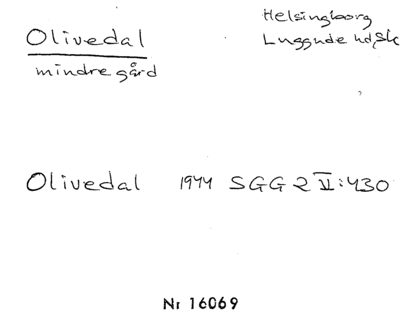 Olivedal
mindre gård
Helsingborg
Luggude hd, Sk
Olivedal 1944 SGG 2 VI:430
Nr 16069